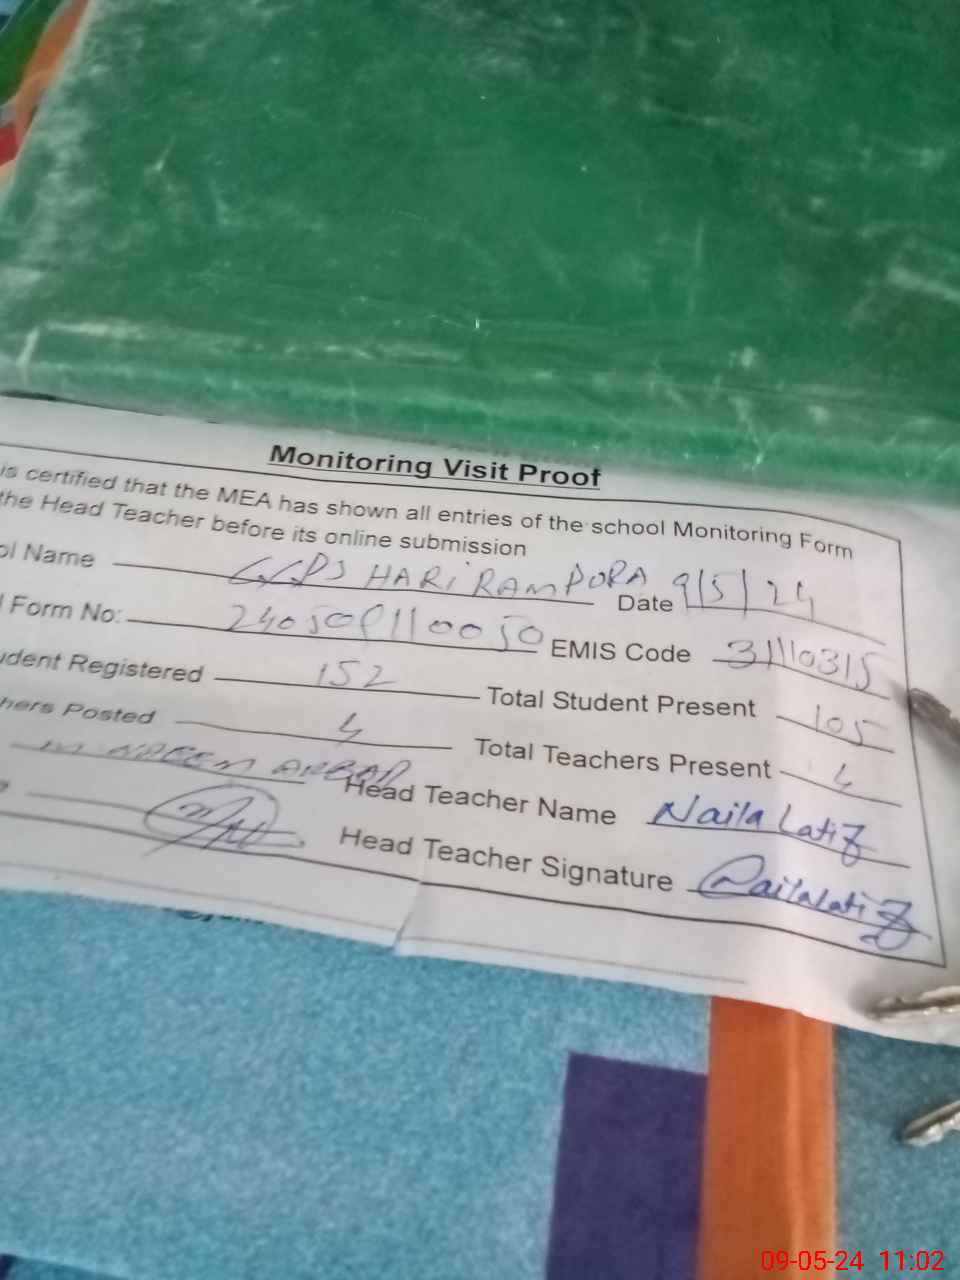 Monitoring Visit Proof
is certified that the MEA has shown all entries of the school Monitoring Form
the Head Teacher before its online submission
ol Name GPS HARI RAMPORA Date 9/5/24
Form No: EMIS Code 31110315
dent Registered 152 Total Student Present 105
hers Posted 4 Total Teachers Present 4
M NAEEM Head Teacher Name Naila Latif
Head Teacher Signature Naila Latif
09-05-24 11:02